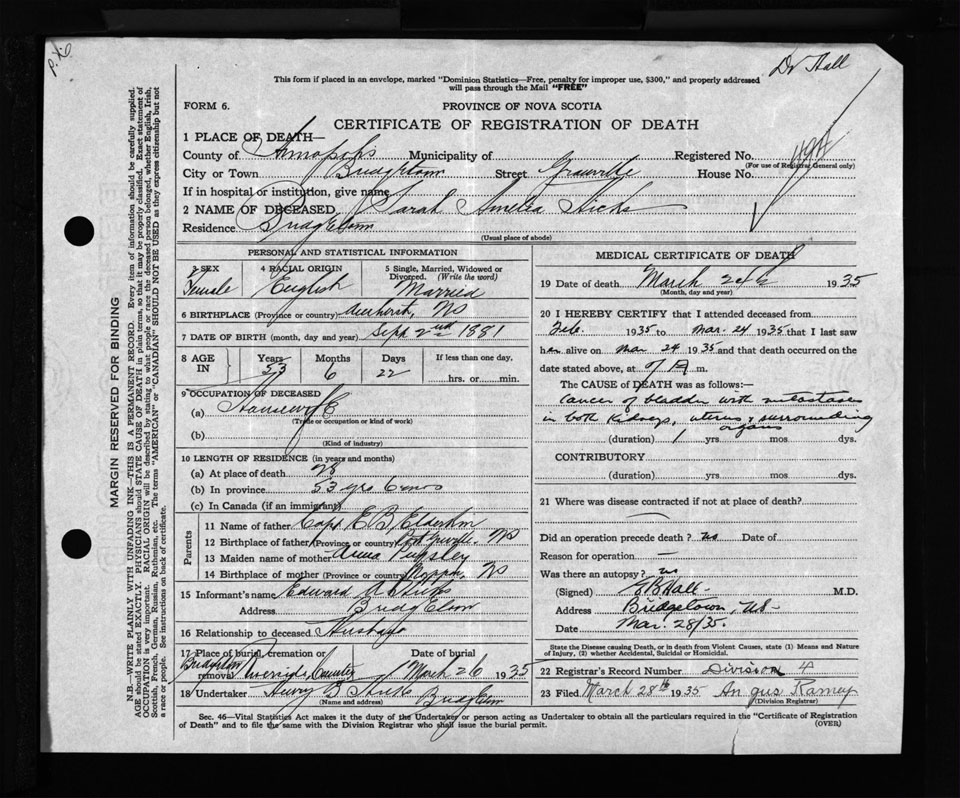 Dr Hall
This form if placed in an envelope, marked "Dominion Statistics—Free, penalty for improper use, $300," and properly addressed
will pass through the Mail "FREE"
FORM 6.
PROVINCE OF NOVA SCOTIA
CERTIFICATE OF REGISTRATION OF DEATH
1 PLACE OF DEATH—
County of Annapolis Municipality of Registered No.
(For use of Registrar General only)
City or Town Bridgetown Street Granville House No.
If in hospital or institution, give name
2 NAME OF DECEASED Sarah Amelia Hicks
Residence Bridgetown
(Usual place of abode)
PERSONAL AND STATISTICAL INFORMATION
3 SEX 4 RACIAL ORIGIN 5 Single, Married, Widowed or Divorced. (Write the word)
Female English Married
6 BIRTHPLACE (Province or country) Amherst, NS
7 DATE OF BIRTH (month, day and year) Sept 2nd 1881
8 AGE IN Years Months Days If less than one day,
53 6 22 hrs. or min.
9 OCCUPATION OF DECEASED
(a) Housewife
(Trade or occupation or kind of work)
(b)
(Kind of industry)
10 LENGTH OF RESIDENCE (in years and months)
(a) At place of death 28
(b) In province 53 yrs 6 mos
(c) In Canada (if an immigrant)
Parents
11 Name of father Capt E B Elderkin
12 Birthplace of father (Province or country) NS
13 Maiden name of mother Anna Pugsley
14 Birthplace of mother (Province or country) Nappan, NS
15 Informant's name Edward A Hicks
Address Bridgetown
16 Relationship to deceased Husband
17 Place of burial, cremation or removal Date of burial
Bridgetown Riverside March 26 1935
18 Undertaker Henry B Hicks Bridgetown
(Name and address)
MEDICAL CERTIFICATE OF DEATH
19 Date of death March 24th 1935
(Month, day and year)
20 I HEREBY CERTIFY that I attended deceased from
Feb. 1935 to Mar. 24 1935 that I last saw
her alive on Mar 24 1935 and that death occurred on the
date stated above, at A m.
The CAUSE of DEATH was as follows:—
Cancer of bladder with metastases
in both kidneys, uterus & surrounding
organs
(duration) 1 yrs mos dys.
CONTRIBUTORY
(duration) yrs. mos. dys.
21 Where was disease contracted if not at place of death?
Did an operation precede death? no Date of
Reason for operation —
Was there an autopsy? no
(Signed) Hall M.D.
Address Bridgetown, NS
Date Mar. 28/35.
State the Disease causing Death, or in death from Violent Causes, state (1) Means and Nature
of Injury, (2) whether Accidental, Suicidal or Homicidal.
22 Registrar's Record Number Division 4
23 Filed March 28th 1935 Angus Ramey
(Division Registrar)
Sec. 46—Vital Statistics Act makes it the duty of the Undertaker or person acting as Undertaker to obtain all the particulars required in the "Certificate of Registration
of Death" and to file the same with the Division Registrar who shall issue the burial permit. (OVER)
MARGIN RESERVED FOR BINDING
N.B.—WRITE PLAINLY WITH UNFADING INK—THIS IS A PERMANENT RECORD. Every item of information should be carefully supplied.
AGE should be stated EXACTLY. PHYSICIANS should STATE CAUSE OF DEATH in plain terms, so that it may be properly classified. Exact statement of
OCCUPATION is very important. RACIAL ORIGIN will be described by stating to what people or race the deceased person belonged, whether English, Irish,
Scottish, French, German, Russian, Ruthenian, etc. The terms "AMERICAN" or "CANADIAN" SHOULD NOT BE USED as they express citizenship but not
a race or people. See instructions on back of certificate.